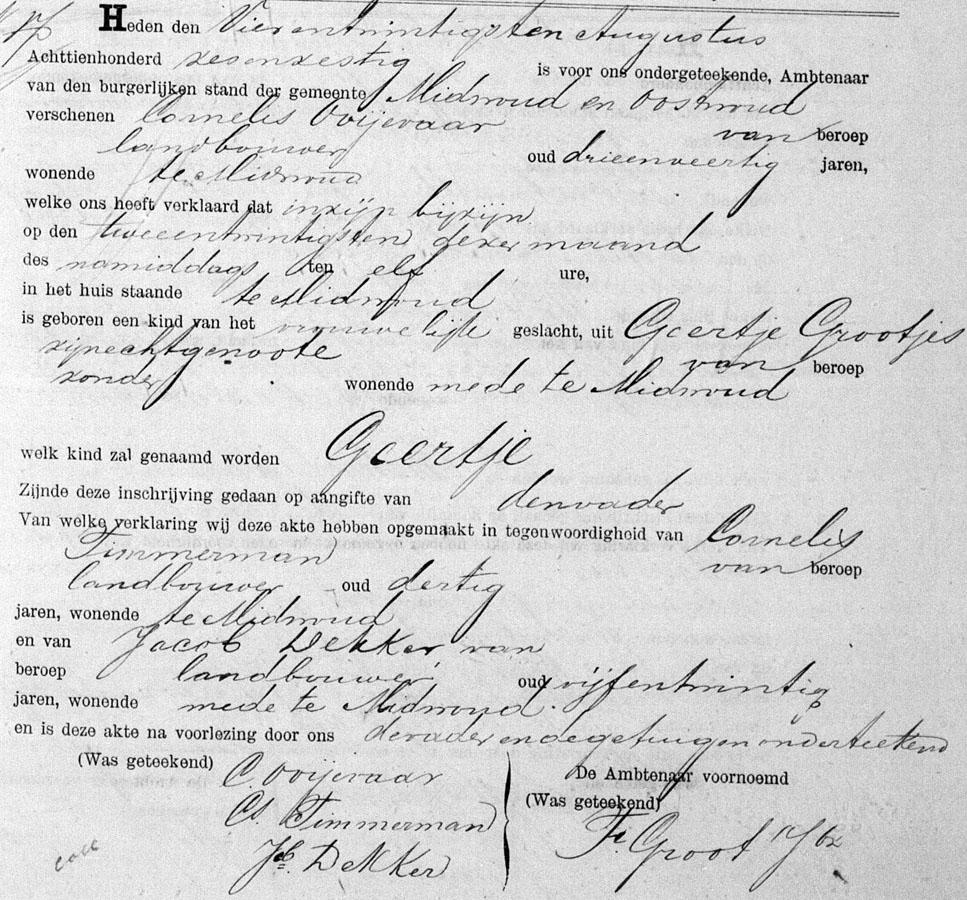 Heden den Vierentwintigsten Augustus
Achttienhonderd zesenzestig is voor ons ondergeteekende, Ambtenaar
van den burgerlijken stand der gemeente Midwoud en Oostwoud
verschenen Cornelis Ooijevaar van beroep
landbouwer oud drieenveertig jaren,
wonende te Midwoud
welke ons heeft verklaard dat in zijn bijzijn
op den tweeentwintigsten dezer maand
des namiddags ten elf ure,
in het huis staande te Midwoud
is geboren een kind van het vrouwelijk geslacht, uit Geertje Grootjes
zijne echtgenoote van beroep
zonder wonende mede te Midwoud
welk kind zal genaamd worden Geertje
Zijnde deze inschrijving gedaan op aangifte van den vader
Van welke verklaring wij deze akte hebben opgemaakt in tegenwoordigheid van Cornelis
Timmerman van beroep
landbouwer oud dertig
jaren, wonende te Midwoud
en van Jacob Dekker van
beroep landbouwer oud vijfentwintig
jaren, wonende mede te Midwoud.
en is deze akte na voorlezing door ons de vader en de getuigen onderteekend
(Was geteekend) C. Ooijevaar De Ambtenaar voornoemd
Cs. Timmerman (Was geteekend)
Jb. Dekker Fr. Groot